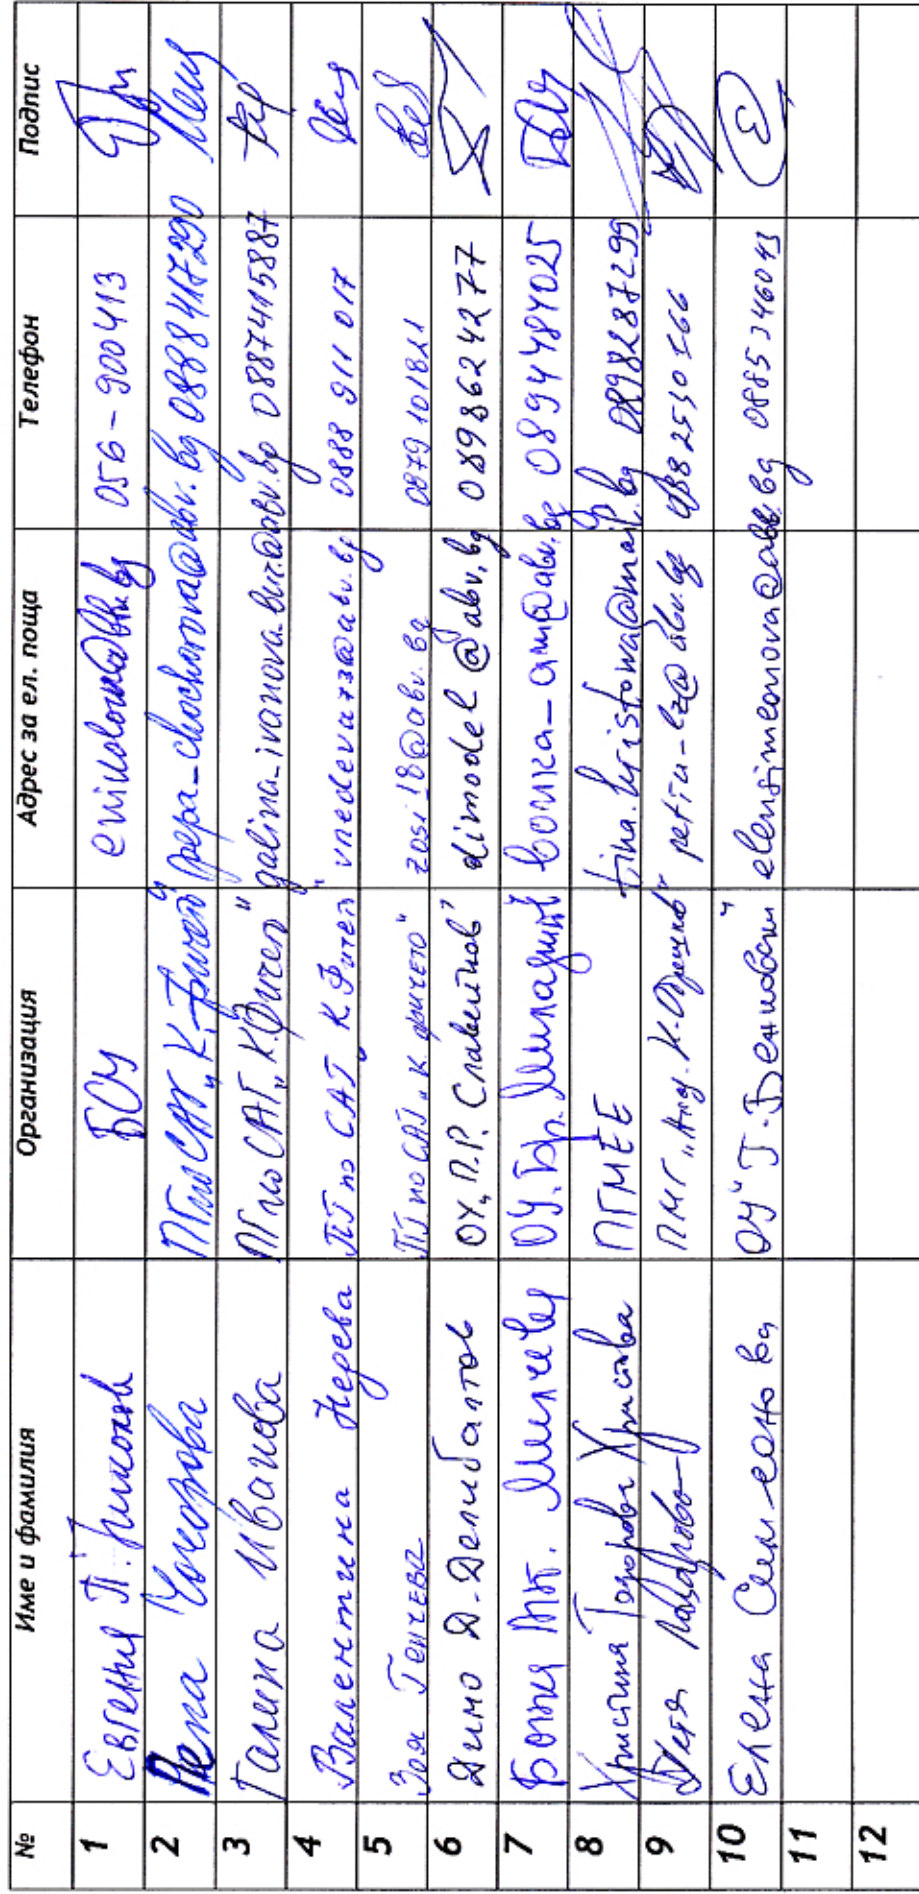 № Име и фамилия Организация Адрес за ел. поща Телефон Подпис
1 Евгения П. Николова БСУ 056-900413
2 Пепа Чочорова ПГпоСАГ„К. Фичето" pepa_chochorova@abv.bg 0888417290
3 Галина Иванова ПГпоСАГ„К.Фичето" galina_ivanova.bur@abv.bg 0887415887
4 Валентина Недева ПГ по САГ „К. Фичето" vnedeva73@abv.bg 0888 911 017
5 Зоя Генчева ПГ по САГ „К. Фичето" zosi_18@abv.bg 0879 101821
6 Димо Д. Делибалтов ОУ„П.Р. Славейков" dimodel@abv.bg 0898624277
7 Боянка Мит. Милчева ОУ„Бр. Миладинови 0894484025
8 Христина Тодорова Христова ПГМЕЕ tina.hristowa@mail.bg 0898287299
9 Петя Лазарова ПМГ „Акад. Н. Обрешков" petiu-lz@abv.bg
10 Елена Симеонова ОУ "Г. Бенковски" elensimeonova@abv.bg 0885346043
11
12